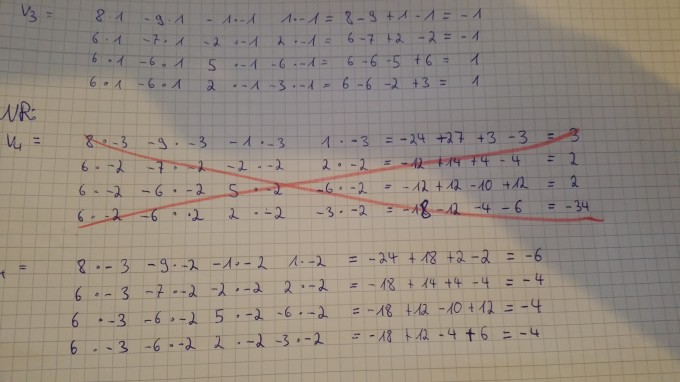 V3 = 8·1 -9·1 -1·-1 1·-1 = 8-9+1-1 = -1
6·1 -7·1 -2·-1 2·-1 = 6-7+2-2 = -1
6·1 -6·1 5·-1 -6·-1 = 6-6-5+6 = 1
6·1 -6·1 2·-1 -3·-1 = 6-6-2+3 = 1
NR:
V4 = 8·-3 -9·-3 -1·-3 1·-3 = -24+27+3-3 = 3
6·-2 -7·-2 -2·-2 2·-2 = -12+14+4-4 = 2
6·-2 -6·-2 5·-2 -6·-2 = -12+12-10+12 = 2
6·-2 -6··2 2·-2 -3·-2 = -18-12-4-6 = -34
= 8·-3 -9·-2 -1·-2 1·-2 = -24+18+2-2 = -6
6·-3 -7·-2 -2·-2 2·-2 = -18+14+4-4 = -4
6·-3 -6·-2 5·-2 -6·-2 = -18+12-10+12 = -4
6·-3 -6·-2 2·-2 -3·-2 = -18+12-4+6 = -4